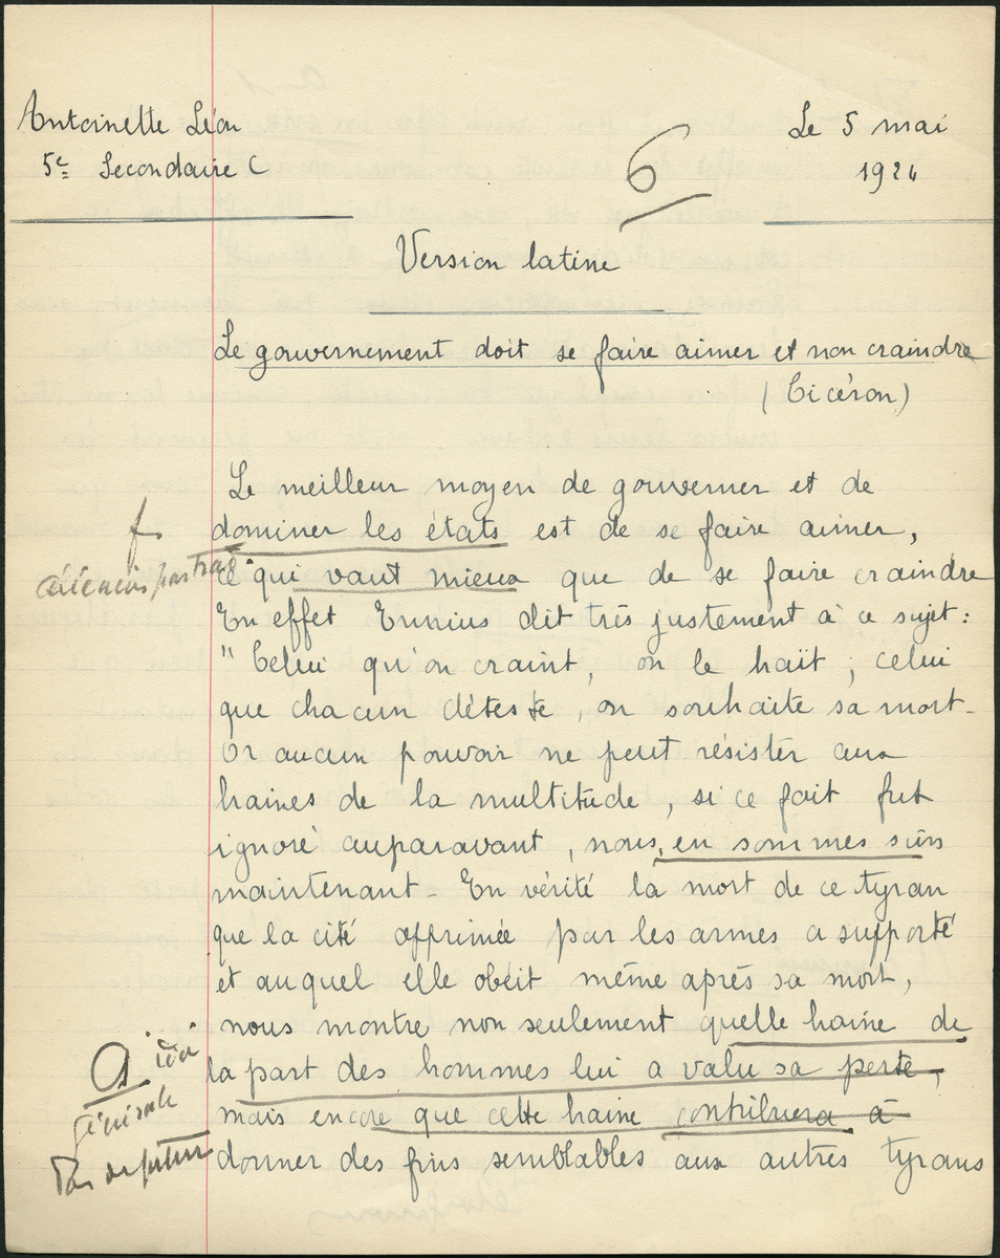 Antoinette Léon
Le 5 mai
5e Secondaire C
6
1924
Version latine
Le gouvernement doit se faire aimer et non craindre
(Cicéron)
Le meilleur moyen de gouverner et de
dominer les états est de se faire aimer,
ce qui vaut mieux que de se faire craindre
En effet Ennius dit très justement à ce sujet :
" Celui qu'on craint, on le haït ; celui
que chacun déteste, on souhaite sa mort-
Or aucun pouvoir ne peut résister aux
haines de la multitude, si ce fait fut
ignoré auparavant, nous en sommes sûrs
maintenant - En vérité la mort de ce tyran
que la cité opprimée par les armes a supporté
et auquel elle obéit même après sa mort,
nous montre non seulement quelle haine de
idée
la part des hommes lui a valu sa perte,
générale
mais encore que cette haine contribuera à
Pas de futur
donner des fins semblables aux autres tyrans